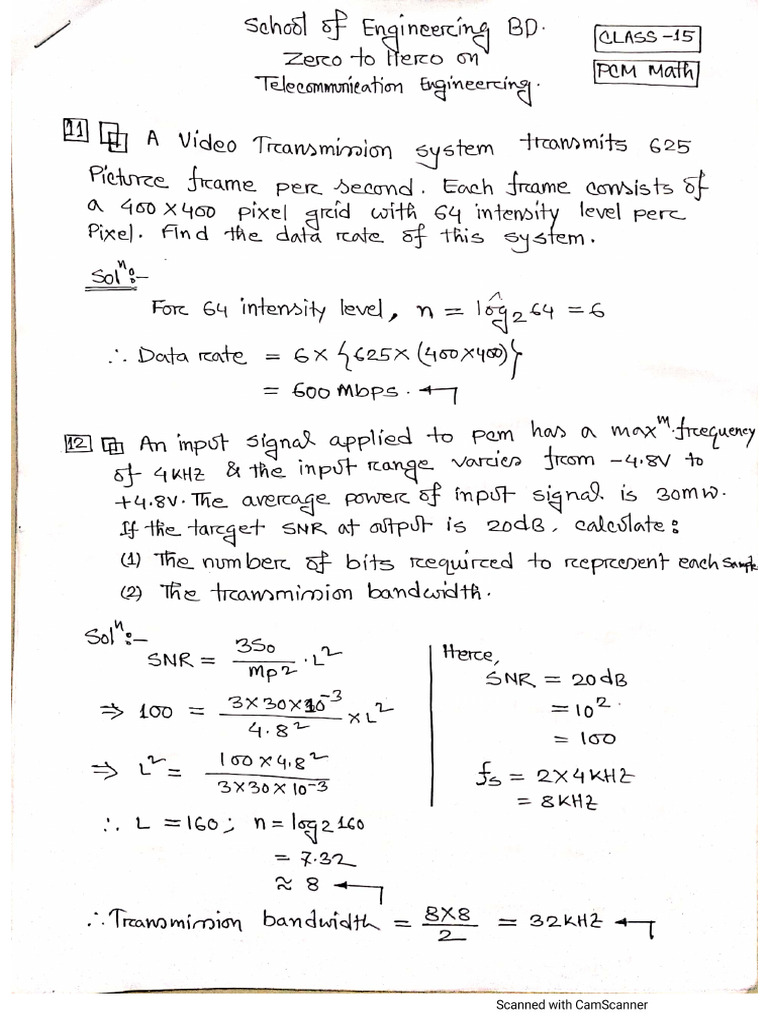 School of Engineering BD.
Zero to Hero on
Telecommunication Engineering.
CLASS-15
PCM Math
11 A Video Transmission system transmits 625
Picture frame per second. Each frame consists of
a 400×400 pixel grid with 64 intensity level per
Pixel. Find the data rate of this system.
Solⁿ:-
For 64 intensity level, n = log₂64 = 6
∴ Data rate = 6×{625×(400×400)}
= 600 Mbps.
12 An input signal applied to pcm has a maxᵐ. frequency
of 4KHZ & the input range varies from -4.8V to
+4.8V. The average power of input signal is 30mw.
If the target SNR at output is 20dB, calculate:
(1) The number of bits required to represent each sample
(2) The transmission bandwidth.
Solⁿ:-
SNR = 3S₀/mp² · L²
⇒ 100 = 3×30×10⁻³/4.8² ×L²
⇒ L² = 100×4.8²/3×30×10⁻³
∴ L = 160; n = log₂160
= 7.32
≈ 8
Here,
SNR = 20dB
= 10²
= 100
fs = 2×4KHZ
= 8KHZ
∴ Transmission bandwidth = 8×8/2 = 32KHZ
Scanned with CamScanner